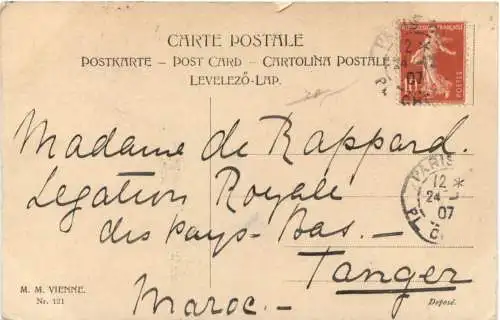 CARTE POSTALE
POSTKARTE – POST CARD – CARTOLINA POSTALE
LEVELEZŐ-LAP.
PARIS
12
24
07
Madame de Rappard.
Legation Royale
des Pays-Bas.
Tanger
Maroc.
M. M. VIENNE.
Nr. 121
Déposé.
POSTES
10
PARIS
2
24
07